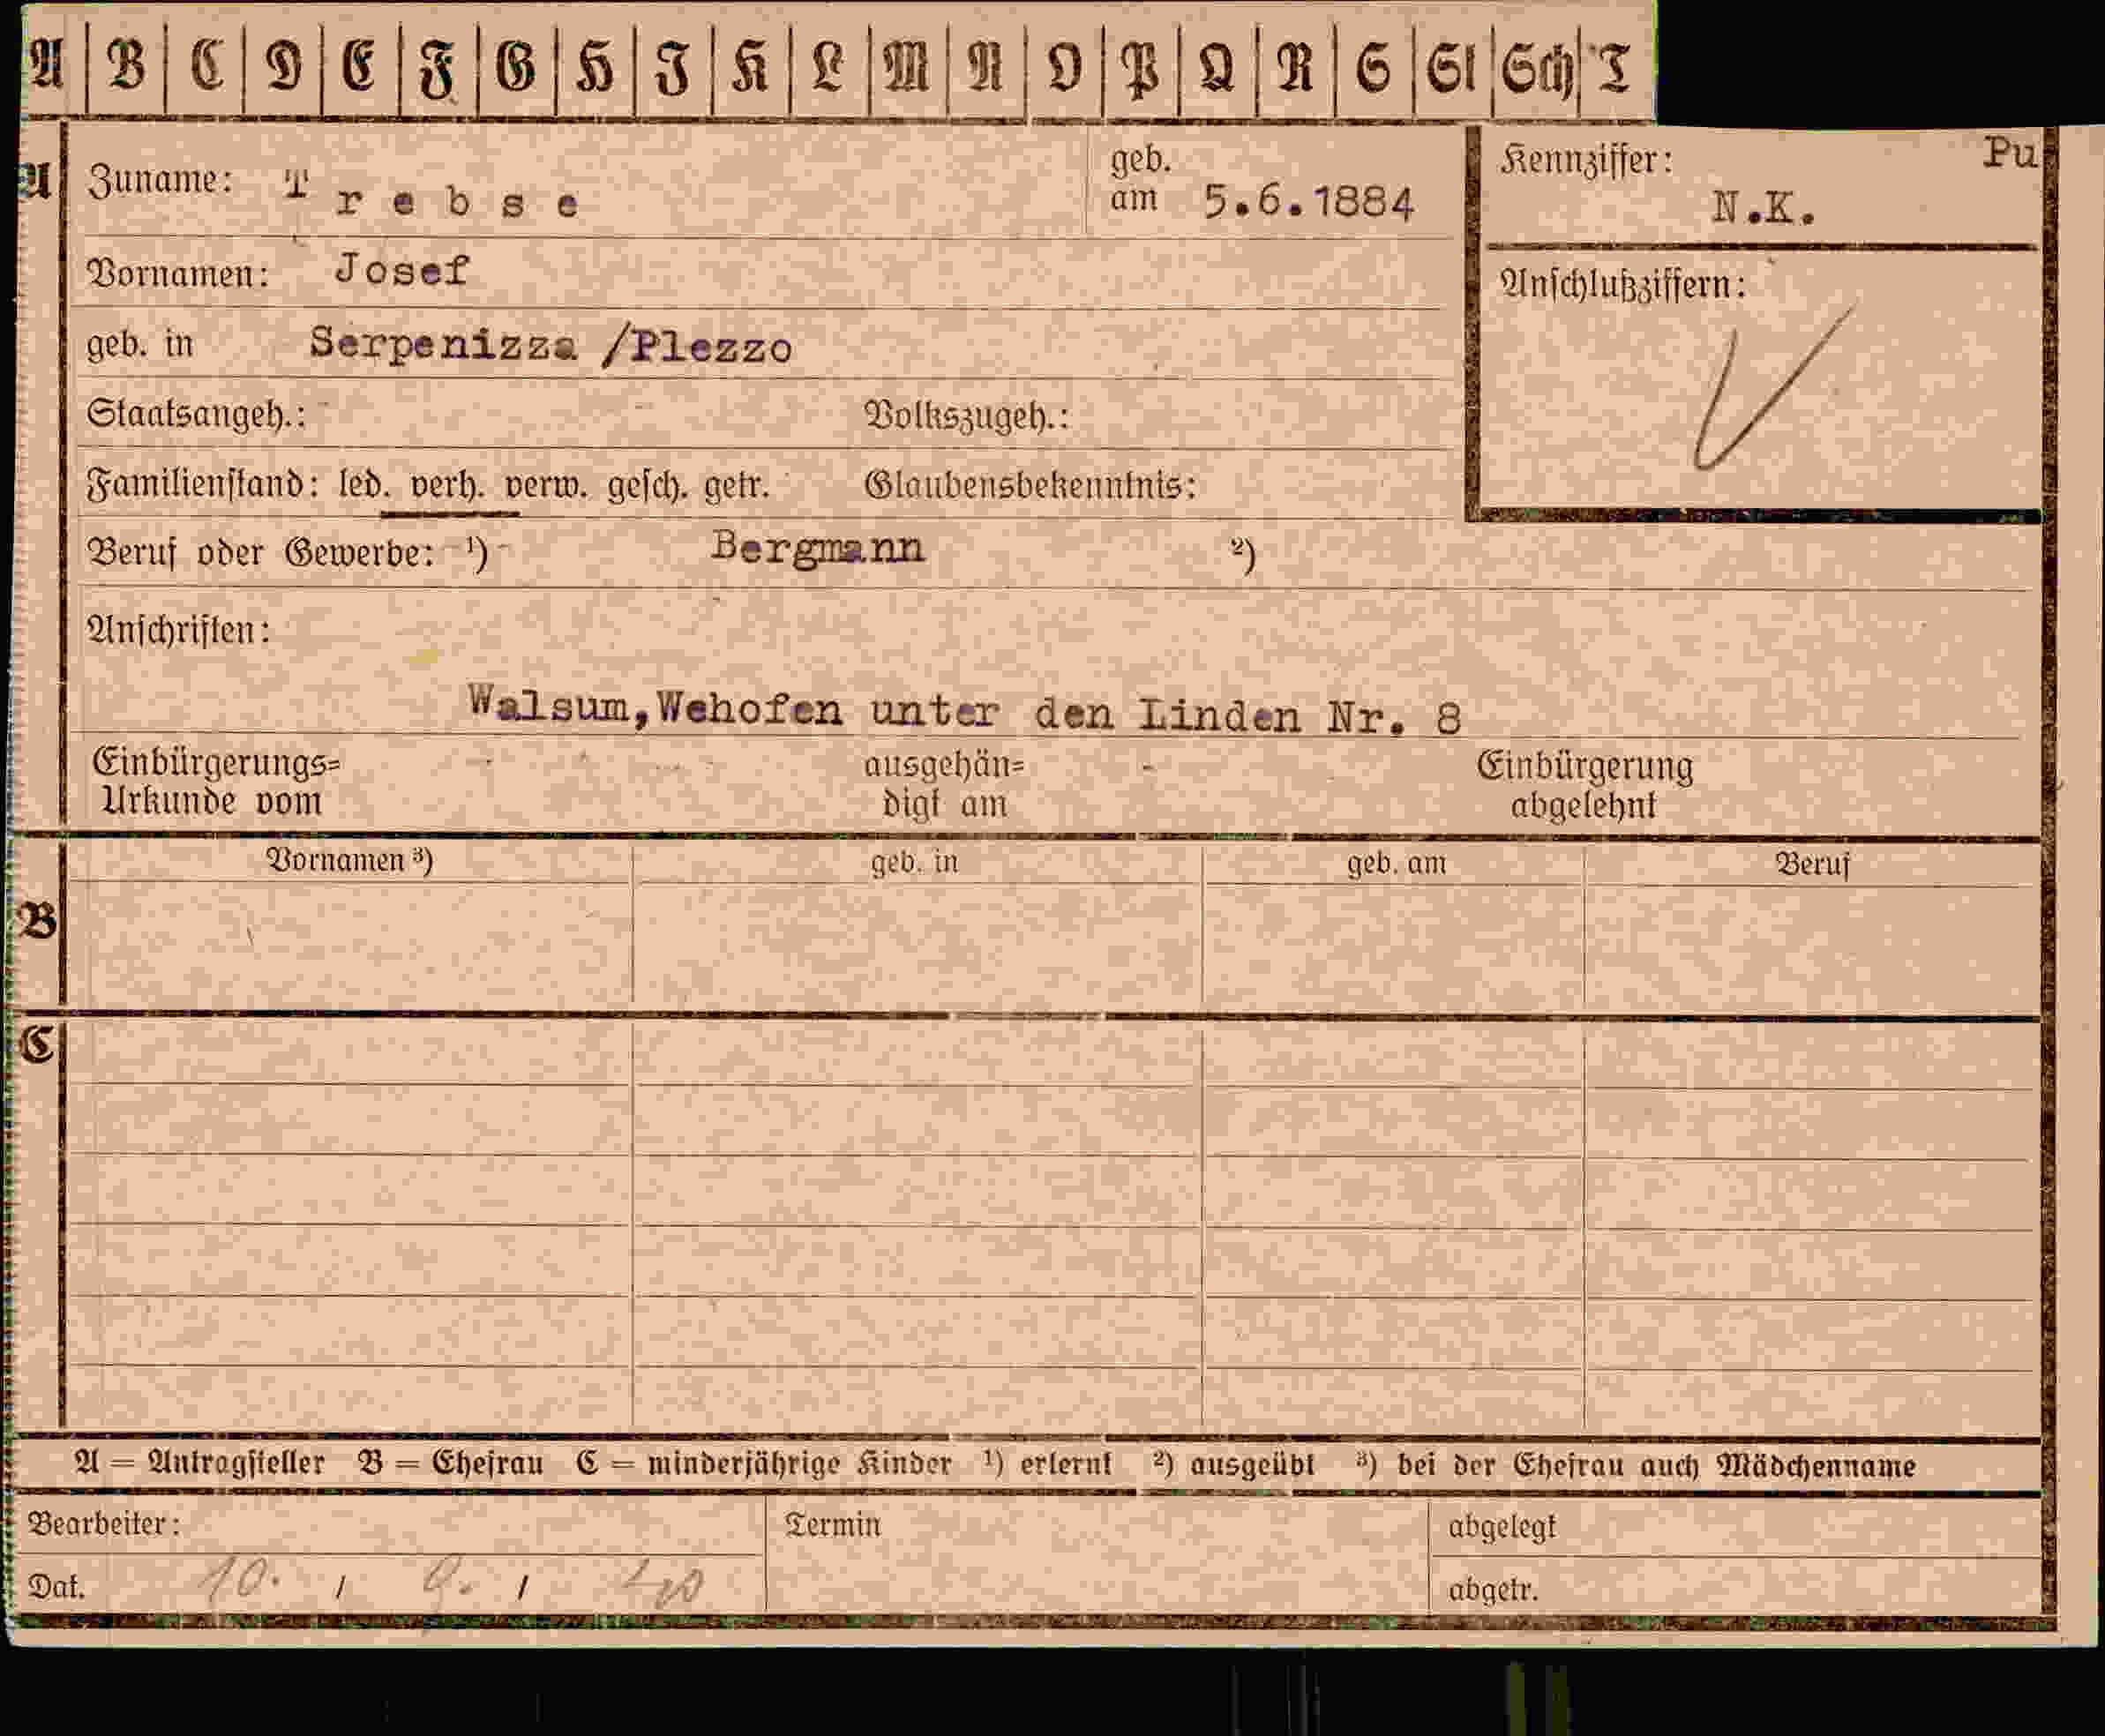 A B C D E F G H I K L M N O P Q R S St Sch T
A Zuname: Trebse geb. am 5.6.1884 Kennziffer: Pu
N.K.
Vornamen: Josef
Anschlußziffern:
geb. in Serpenizza /Plezzo
Staatsangeh.: Volkszugeh.:
Familienstand: led. verh. verw. gesch. getr. Glaubensbekenntnis:
Beruf oder Gewerbe: ¹) Bergmann ²)
Anschriften:
Walsum,Wehofen unter den Linden Nr. 8
Einbürgerungs= ausgehän= Einbürgerung
Urkunde vom digt am abgelehnt
Vornamen ³) geb. in geb. am Beruf
B
C
A = Antragsteller B = Ehefrau C = minderjährige Kinder ¹) erlernt ²) ausgeübt ³) bei der Ehefrau auch Mädchenname
Bearbeiter: Termin abgelegt
Dat. 10. / 9. / 40 abgetr.